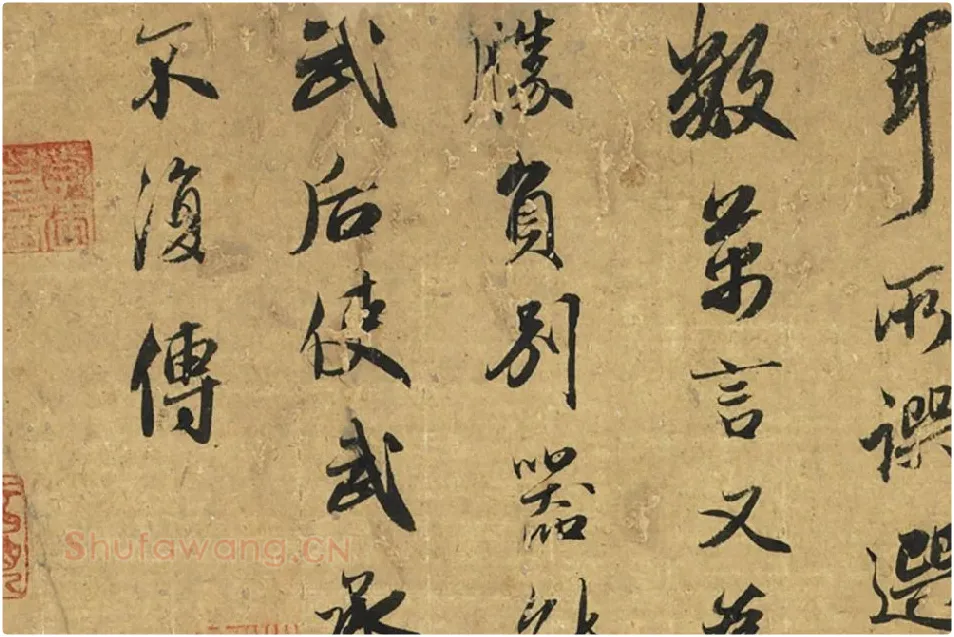 耳所譔選
數萬言又
勝負別器
武后使武承
不復傳
Shufawang.CN